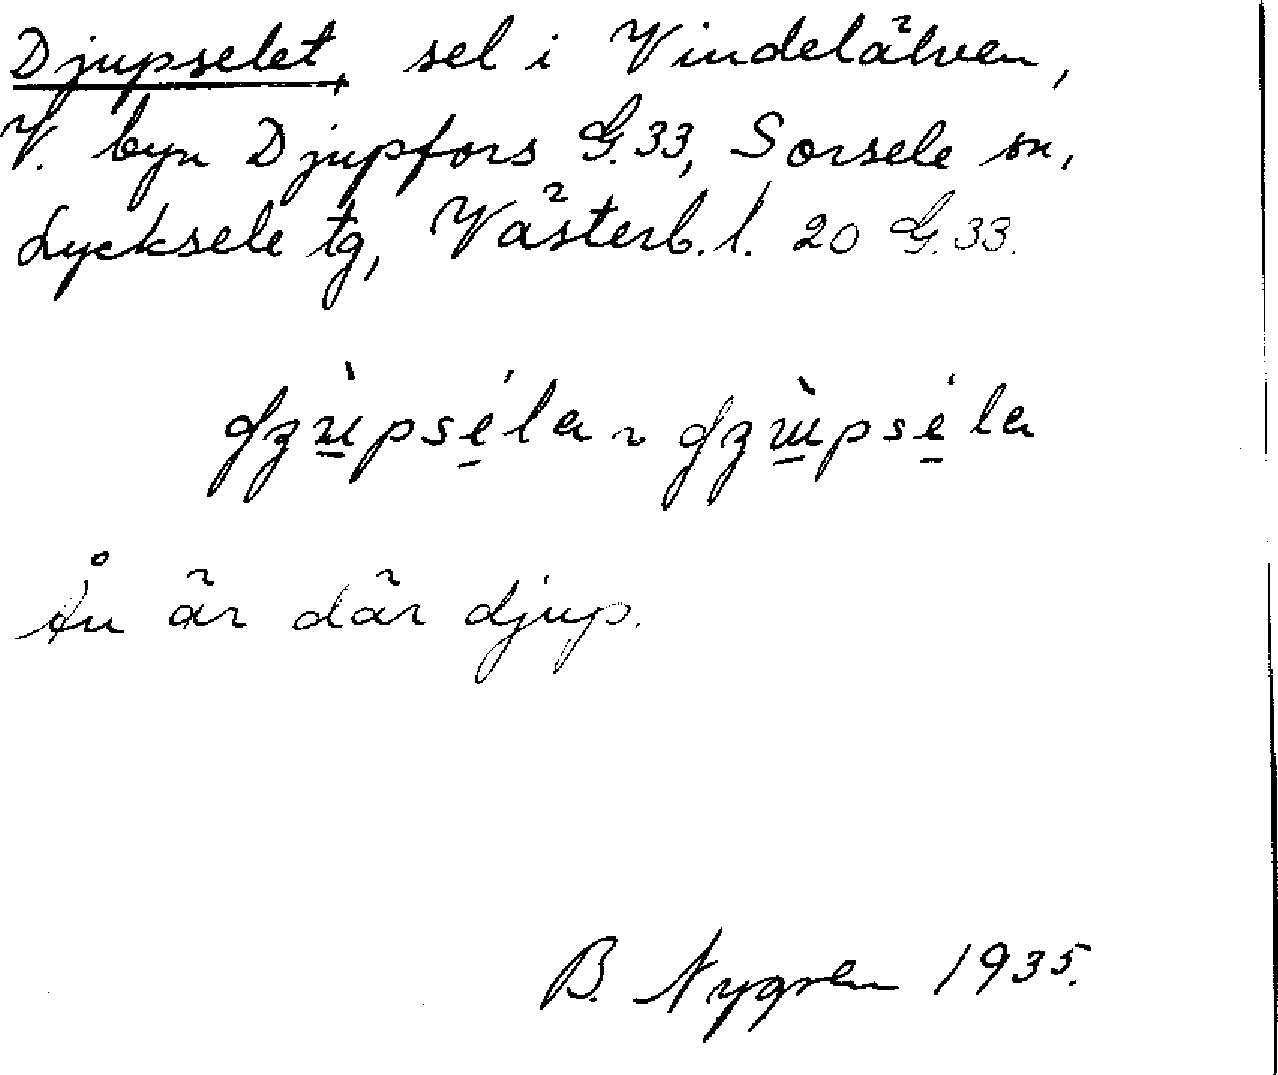 Djupselet, sel i Vindelälven,
V. byn Djupfors G.33, Sorsele sn,
Lycksele tg, Västerb. l. 20 G.33.
Ån är där djup.
B. Nygren 1935.